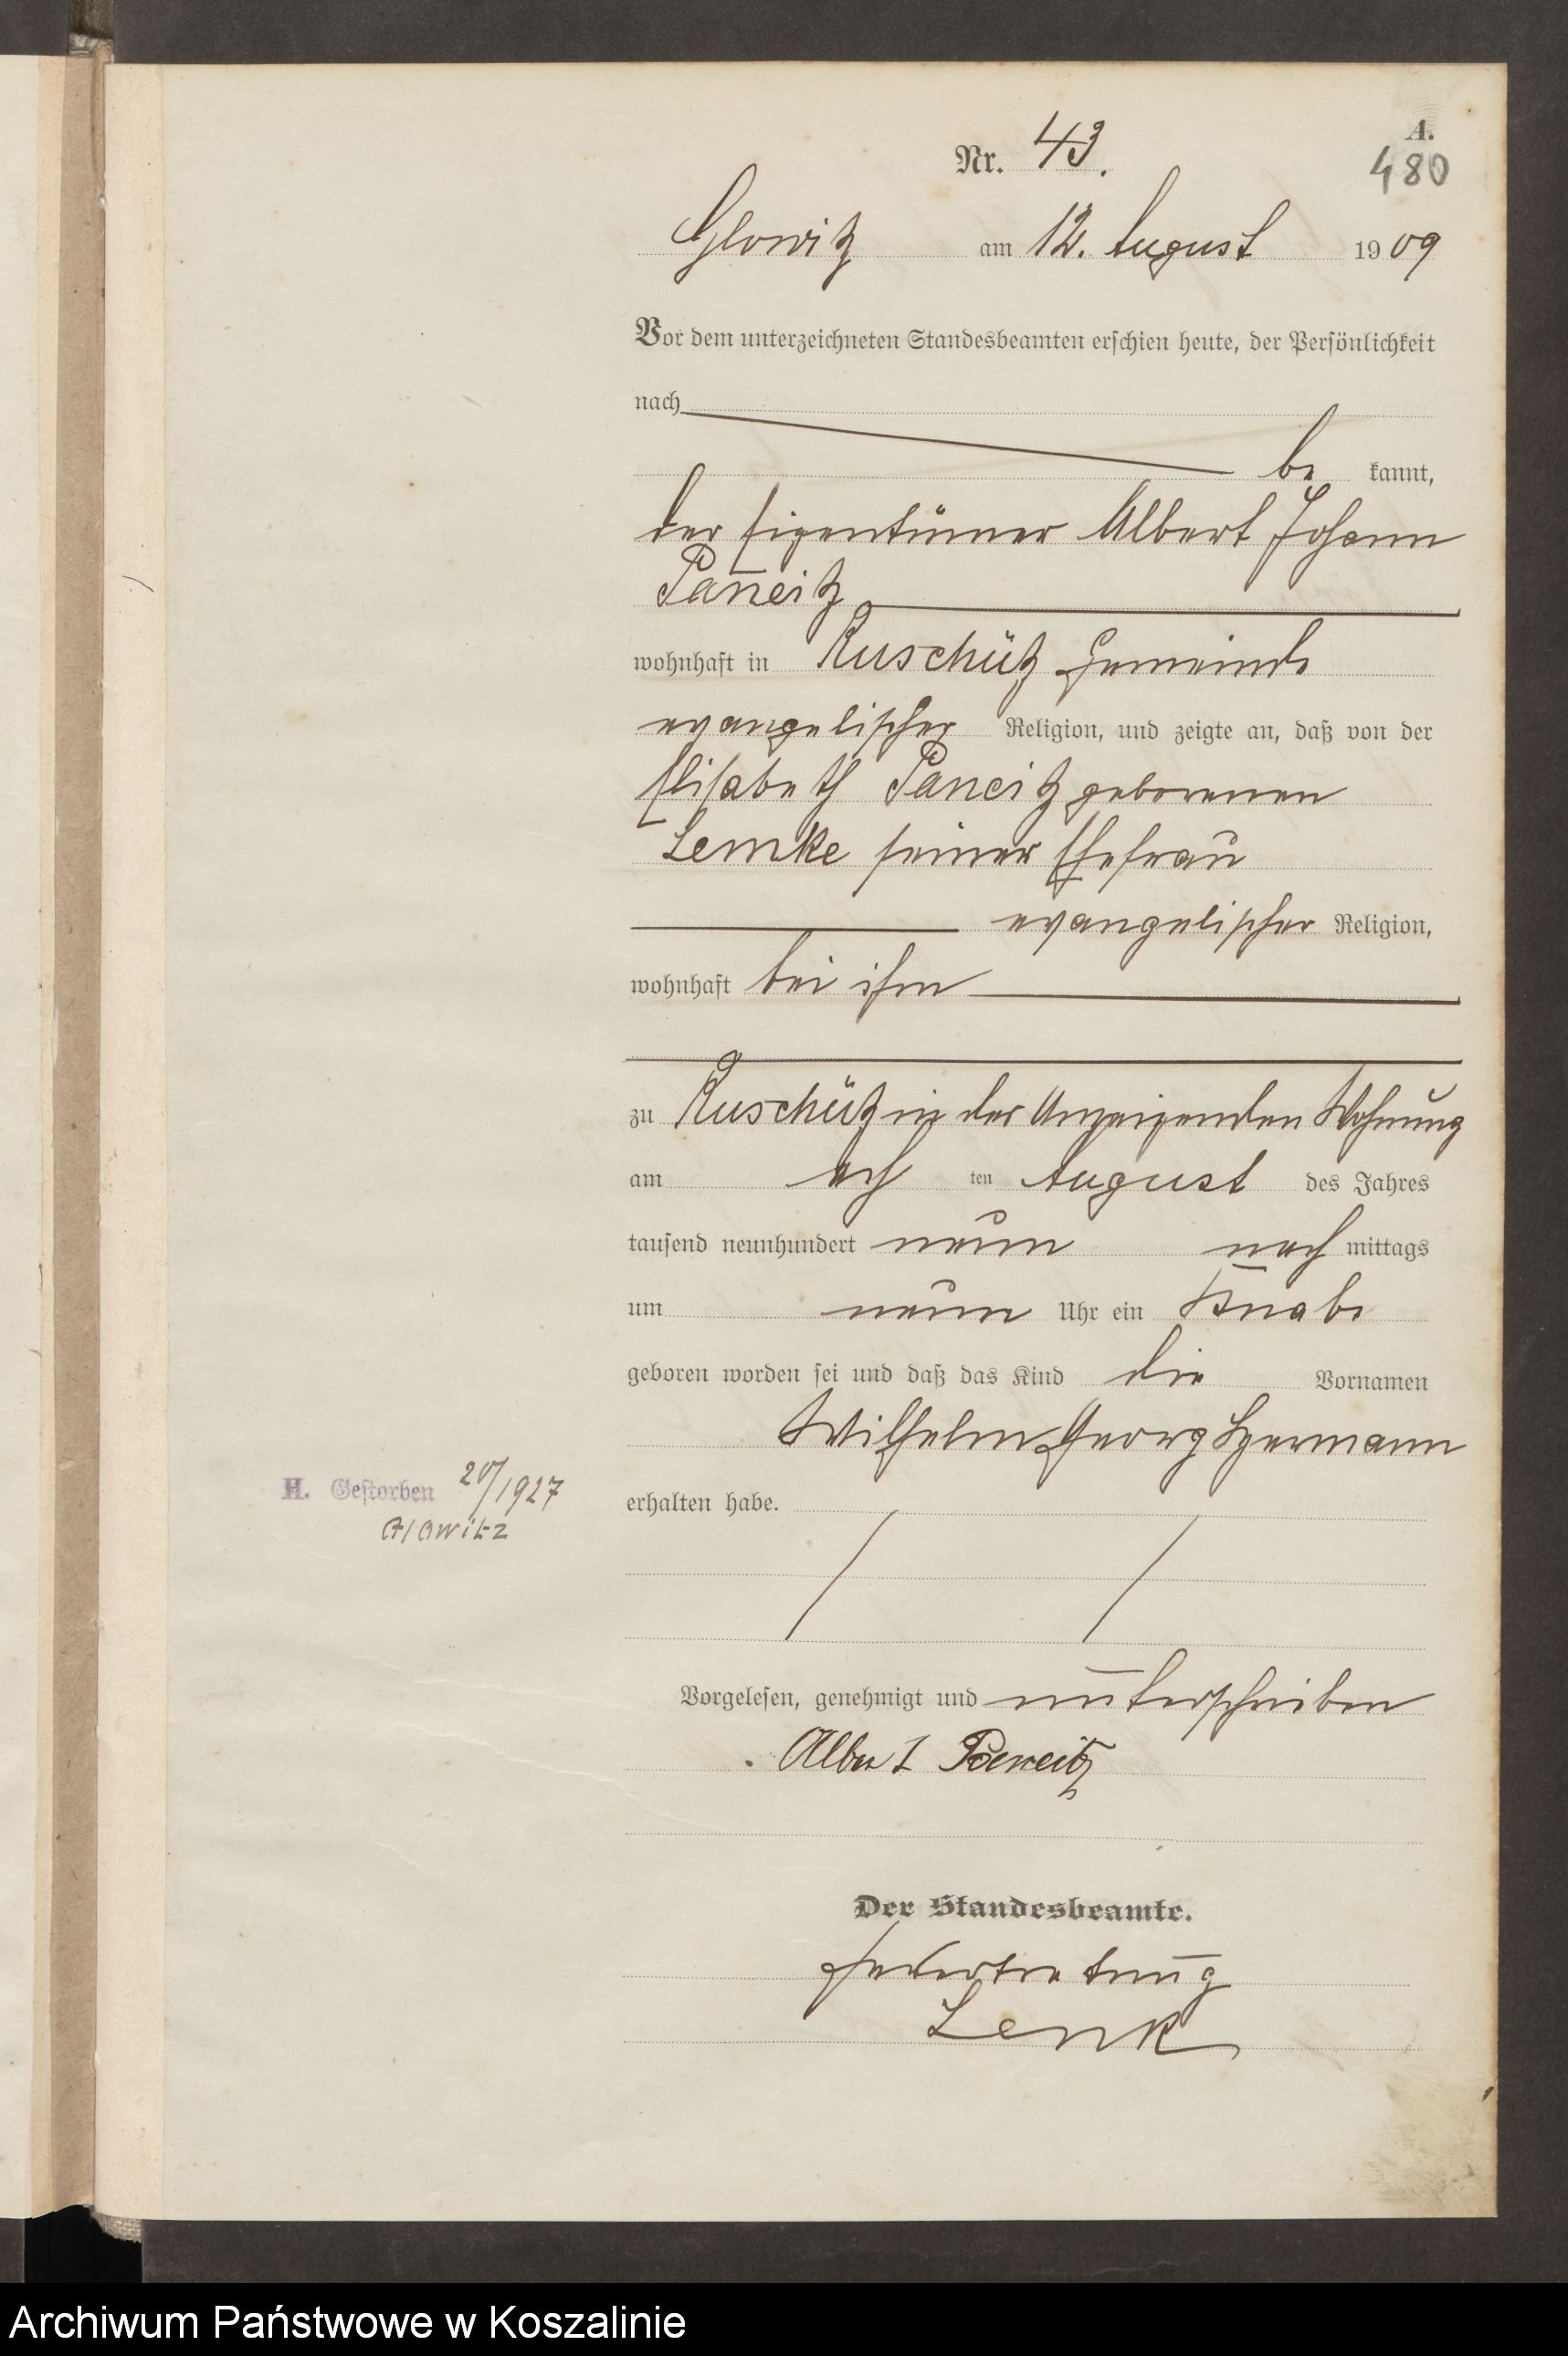 A.
Nr. 43.
480
Glowitz am 12. August 1909
Vor dem unterzeichneten Standesbeamten erschien heute, der Persönlichkeit
nach
be kannt,
der Eigentümer Albert Johann
Panneitz
wohnhaft in Ruschütz Gemeinde
evangelischer Religion, und zeigte an, daß von der
Elisabeth Paneitz geborenen
Lemke seiner Ehefrau
evangelischer Religion,
wohnhaft bei ihm
zu Ruschütz in der Anzeigenden Wohnung
am ach ten August des Jahres
tausend neunhundert neun nach mittags
um neun Uhr ein Knabe
geboren worden sei und daß das Kind die Vornamen
Wilhelm Georg Hermann
H. Gestorben 20/1927
Glowitz
erhalten habe.
Vorgelesen, genehmigt und unterschrieben
Albert Paneitz
Der Standesbeamte.
In Vertretung
Lenk
Archiwum Państwowe w Koszalinie